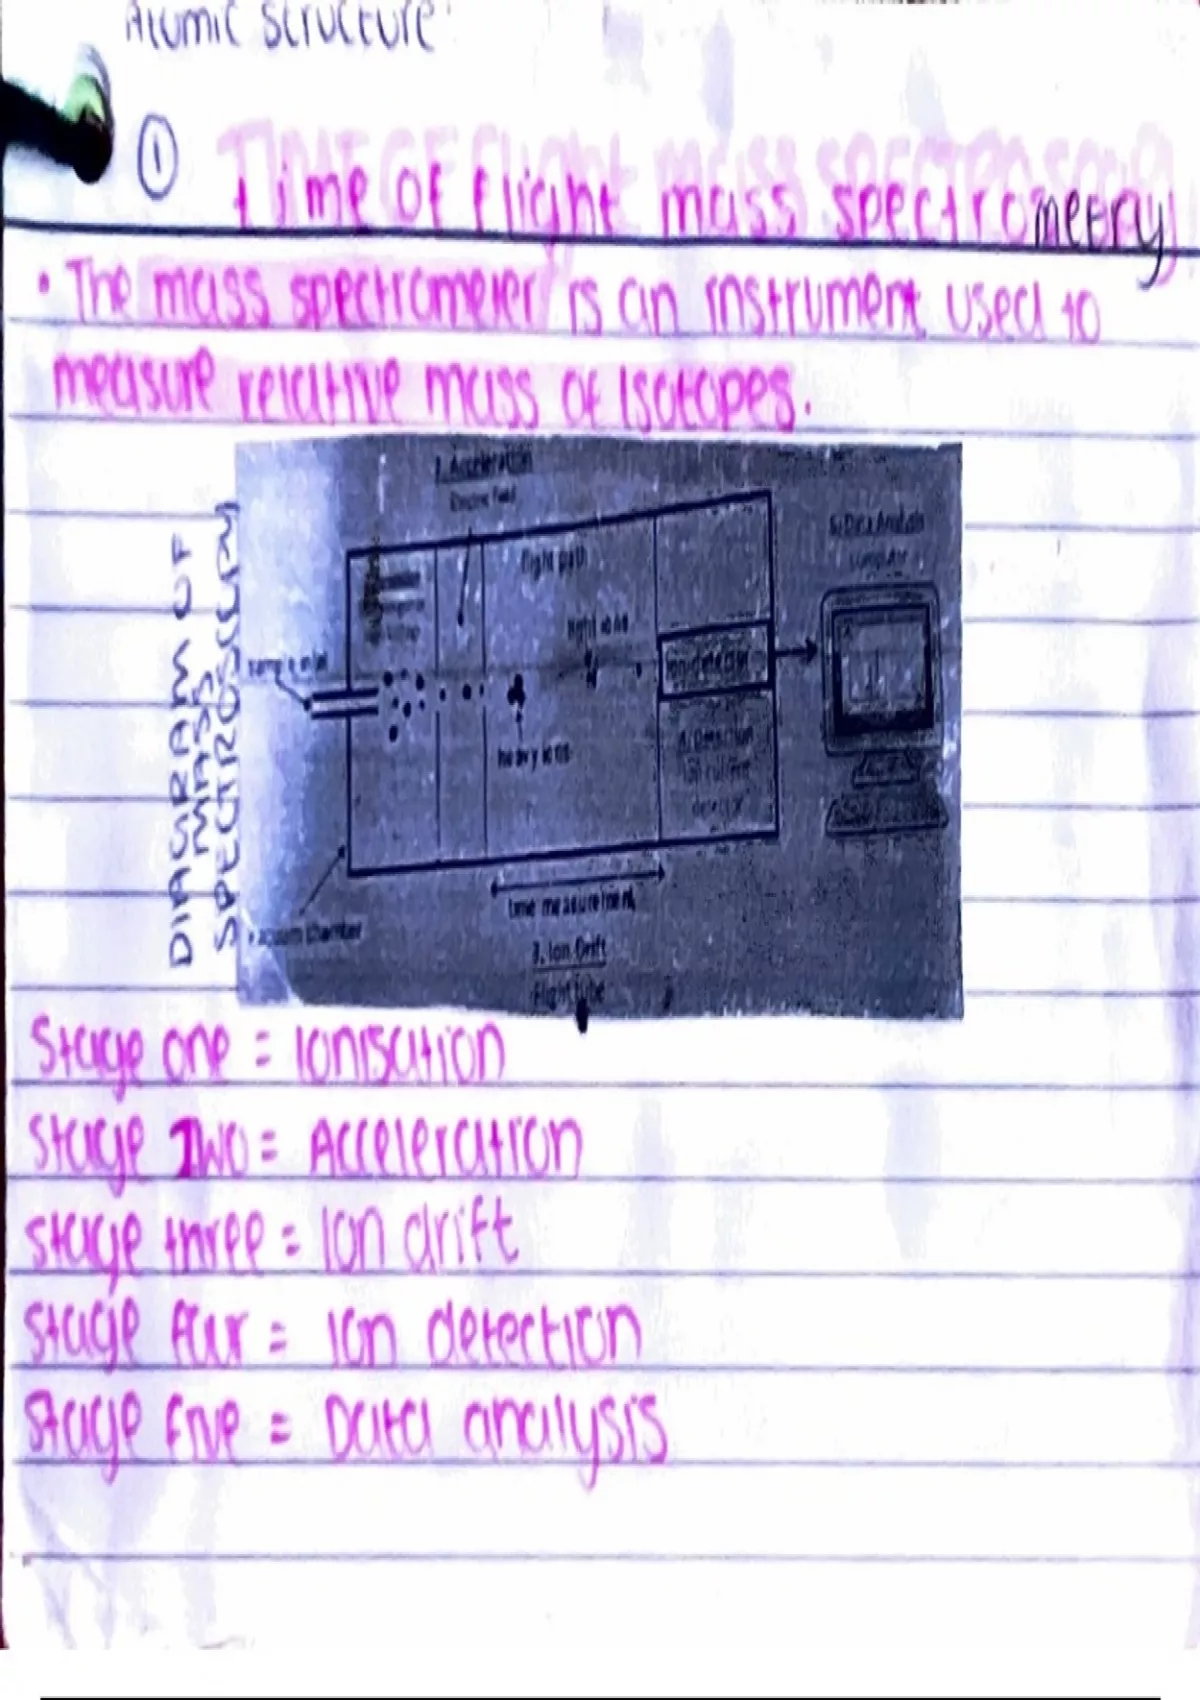 Atomic Structure
① Time of flight mass spectrometry
• The mass spectrometer is an instrument used to
measure relative mass of isotopes.
DIAGRAM OF
MASS
SPECTROSCOPY
2. Acceleration
Electric field
5. Data Analysis
computer
flight path
light ions
sample inlet
ion detector
heavy ions
4. Detection
ion current
detector
time measurement
vacuum chamber
3. Ion Drift
Flight tube
Stage one = Ionisation
Stage Two = Acceleration
Stage three = Ion drift
Stage four = Ion detection
Stage five = Data analysis